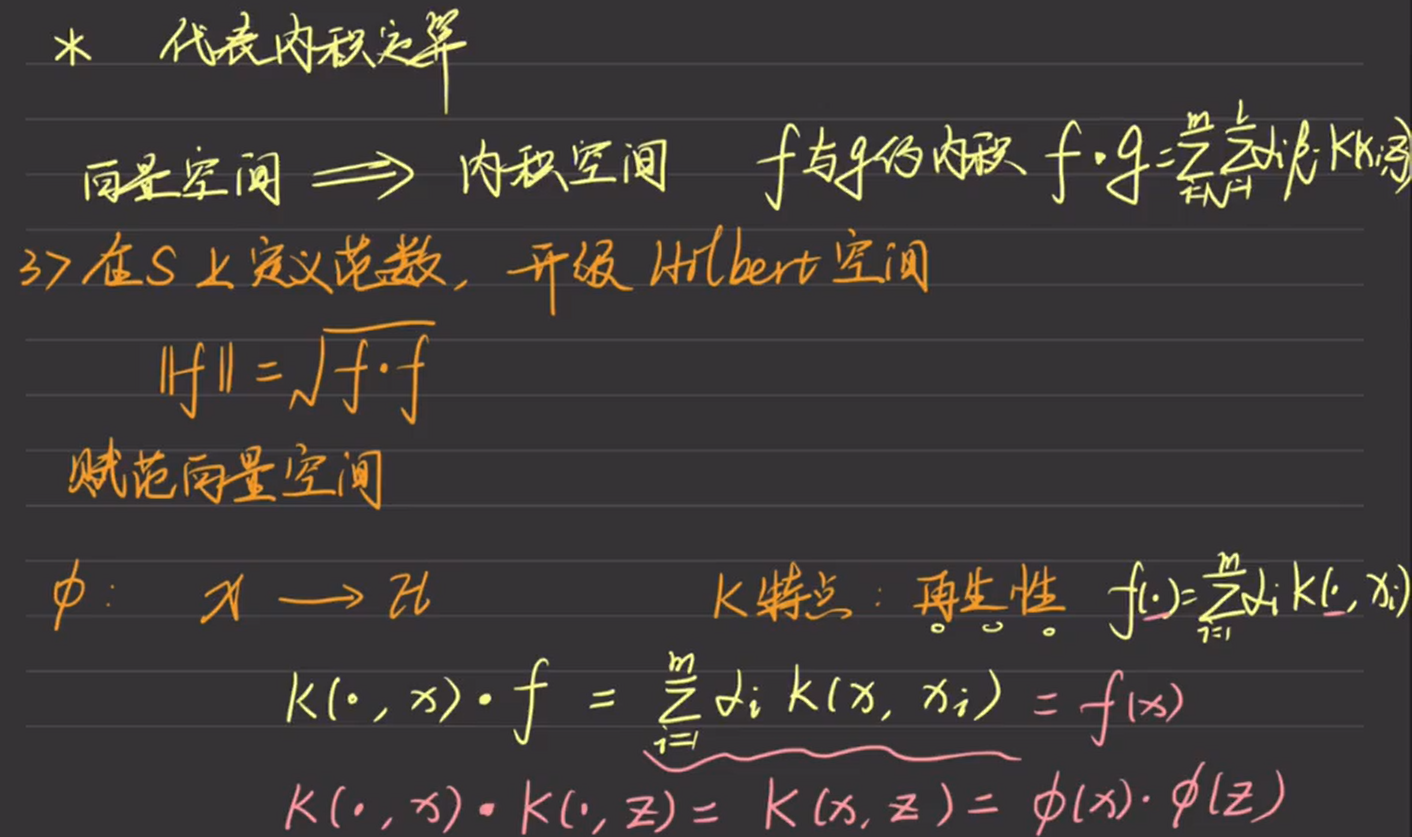 * 代表内积运算
向量空间 ⟹ 内积空间 f与g的内积 f·g=∑_{i=1}^{m}∑_{j=1}^{l}α_iβ_jK(x_i,z_j)
3> 在S上定义范数, 升级 Hilbert 空间
‖f‖ = √(f·f)
赋范向量空间
φ: 𝒳 ⟶ ℋ K特点: 再生性 f(·)=∑_{i=1}^{m}α_i K(·, x_i)
K(·, x)·f = ∑_{i=1}^{m} α_i K(x, x_i) = f(x)
K(·, x)·K(·, z) = K(x, z) = φ(x)·φ(z)